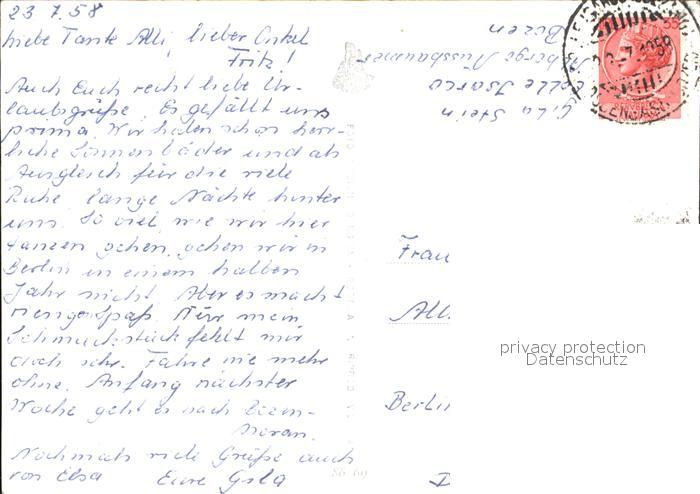 23.7.58
Liebe Tante Alli, lieber Onkel
Fritz!
Auch Euch recht liebe Ur-
laubsgrüße. Es gefällt uns
prima. Wir haben schon herr-
liche Sonnenbäder und als
Ausgleich für die viele
Ruhe, lange Nächte hinter
uns. So viel, wie wir hier
tanzen gehen, gehen wir in
Berlin in einem halben
Jahr nicht. Aber es macht
riengen Spaß. Nur mein
Schmuckstück fehlt mir
doch sehr. Fahre nie mehr
ohne. Anfang nächster
Woche geht es nach Bozen-
Meran.
Nochmals viele Grüße auch
von Elsa Eure Gila
Gila Stein
Colle Isarco
Alberge Nussbaumer
Bozen
Frau
All.
Berlin
privacy protection
Datenschutz